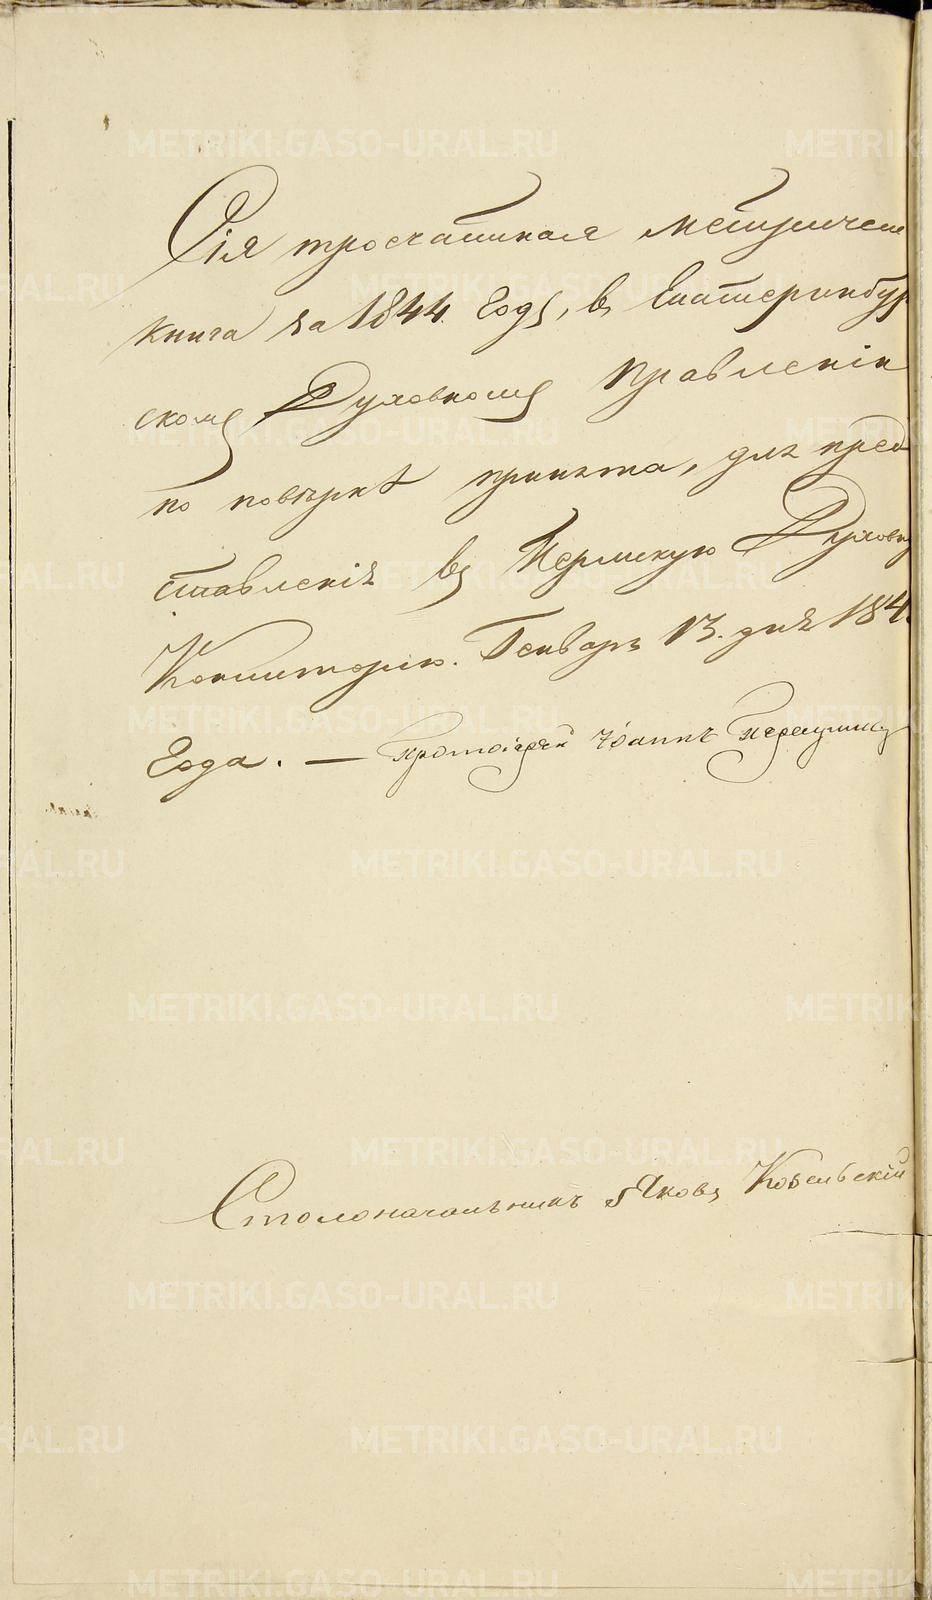 Сія троечастная метричес
книга за 1844 годъ, въ Екатеринбур
скомъ Духовномъ Правленіи
по повѣркѣ принята, для пред
ставленія въ Пермскую Духовну
Консисторію. Генваря 13. дня 184
года. — Протоіерей Іоаннъ
Столоначальникъ Яковъ Кобельскій
METRIKI.GASO-URAL.RU